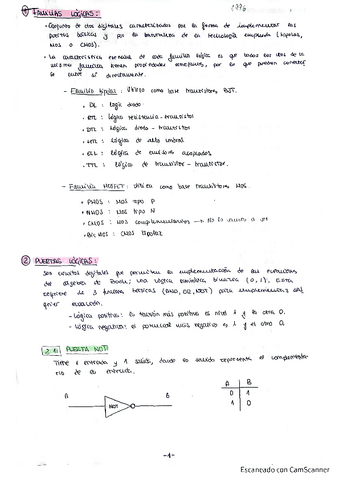 ① FAMILIAS LÓGICAS:
- Conjunto de ctos digitales caracterizados por la forma de implementar las
puertas básicas y por la tecnología empleada (bipolar,
MOS o CMOS).
- La característica esencial de cada familia lógica es que todos los ctos de la
misma familia tienen propiedades semejantes, por lo que pueden conectar
se entre sí directamente.
- Familia bipolar: Utiliza como base transistores BJT.
· DL : Logic diodo
· RTL : Lógica resistencia-transistor
· DTL : Lógica diodo-transistor
· HTL : Lógica de alto umbral
· ECL : Lógica de emisores acoplados
· TTL : Lógica de transistor-transistor.
- Familia MOSFET: Utiliza como base transistores MOS.
· PMOS : MOS tipo P
· NMOS : MOS tipo N
· CMOS : MOS complementarios → No la vamos a ver
· BicMOS : CMOS Bipolar
② PUERTAS LÓGICAS:
Son circuitos digitales que permiten la implementación de las funciones
del álgebra de Boole; una lógica binaria (0,1), la
requiere de 3 puertas básicas (AND, OR, NOT) para implementar
- Lógica positiva: la tensión más positiva es nivel 1 y la otra 0.
- Lógica negativa: el potencial más negativo es 1 y el otro 0.
2.1 PUERTA NOT:
Tiene 1 entrada y 1 salida, donde la salida representa el complementa
rio de la entrada.
A B
0 1
1 0
A NOT B
-1-
Escaneado con CamScanner